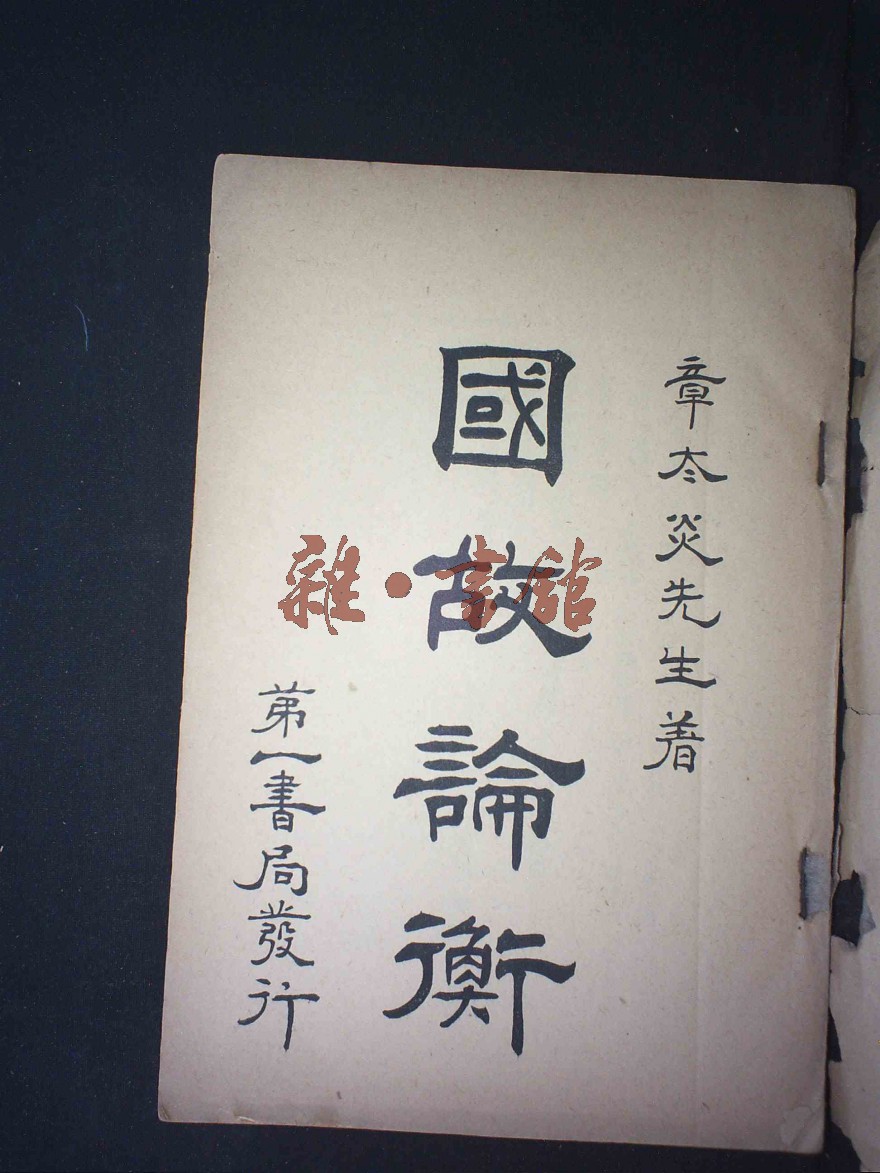 章太炎先生著
國故論衡
第一書局發行
雜·書館